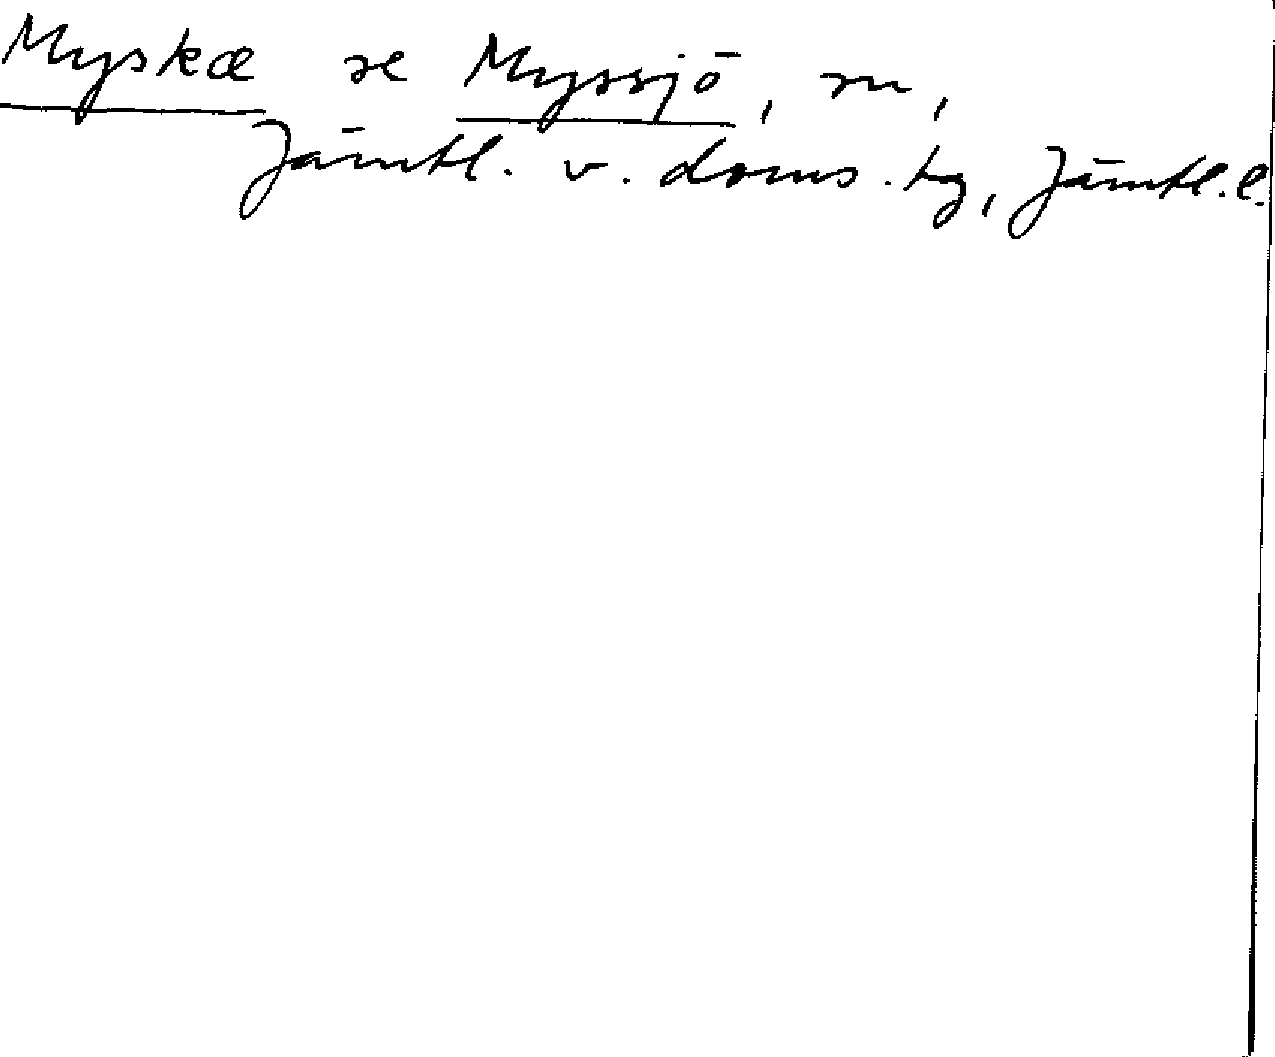 Myskæ se Myssjö, sn,
Jämtl. v. doms. tg, Jämtl. l.